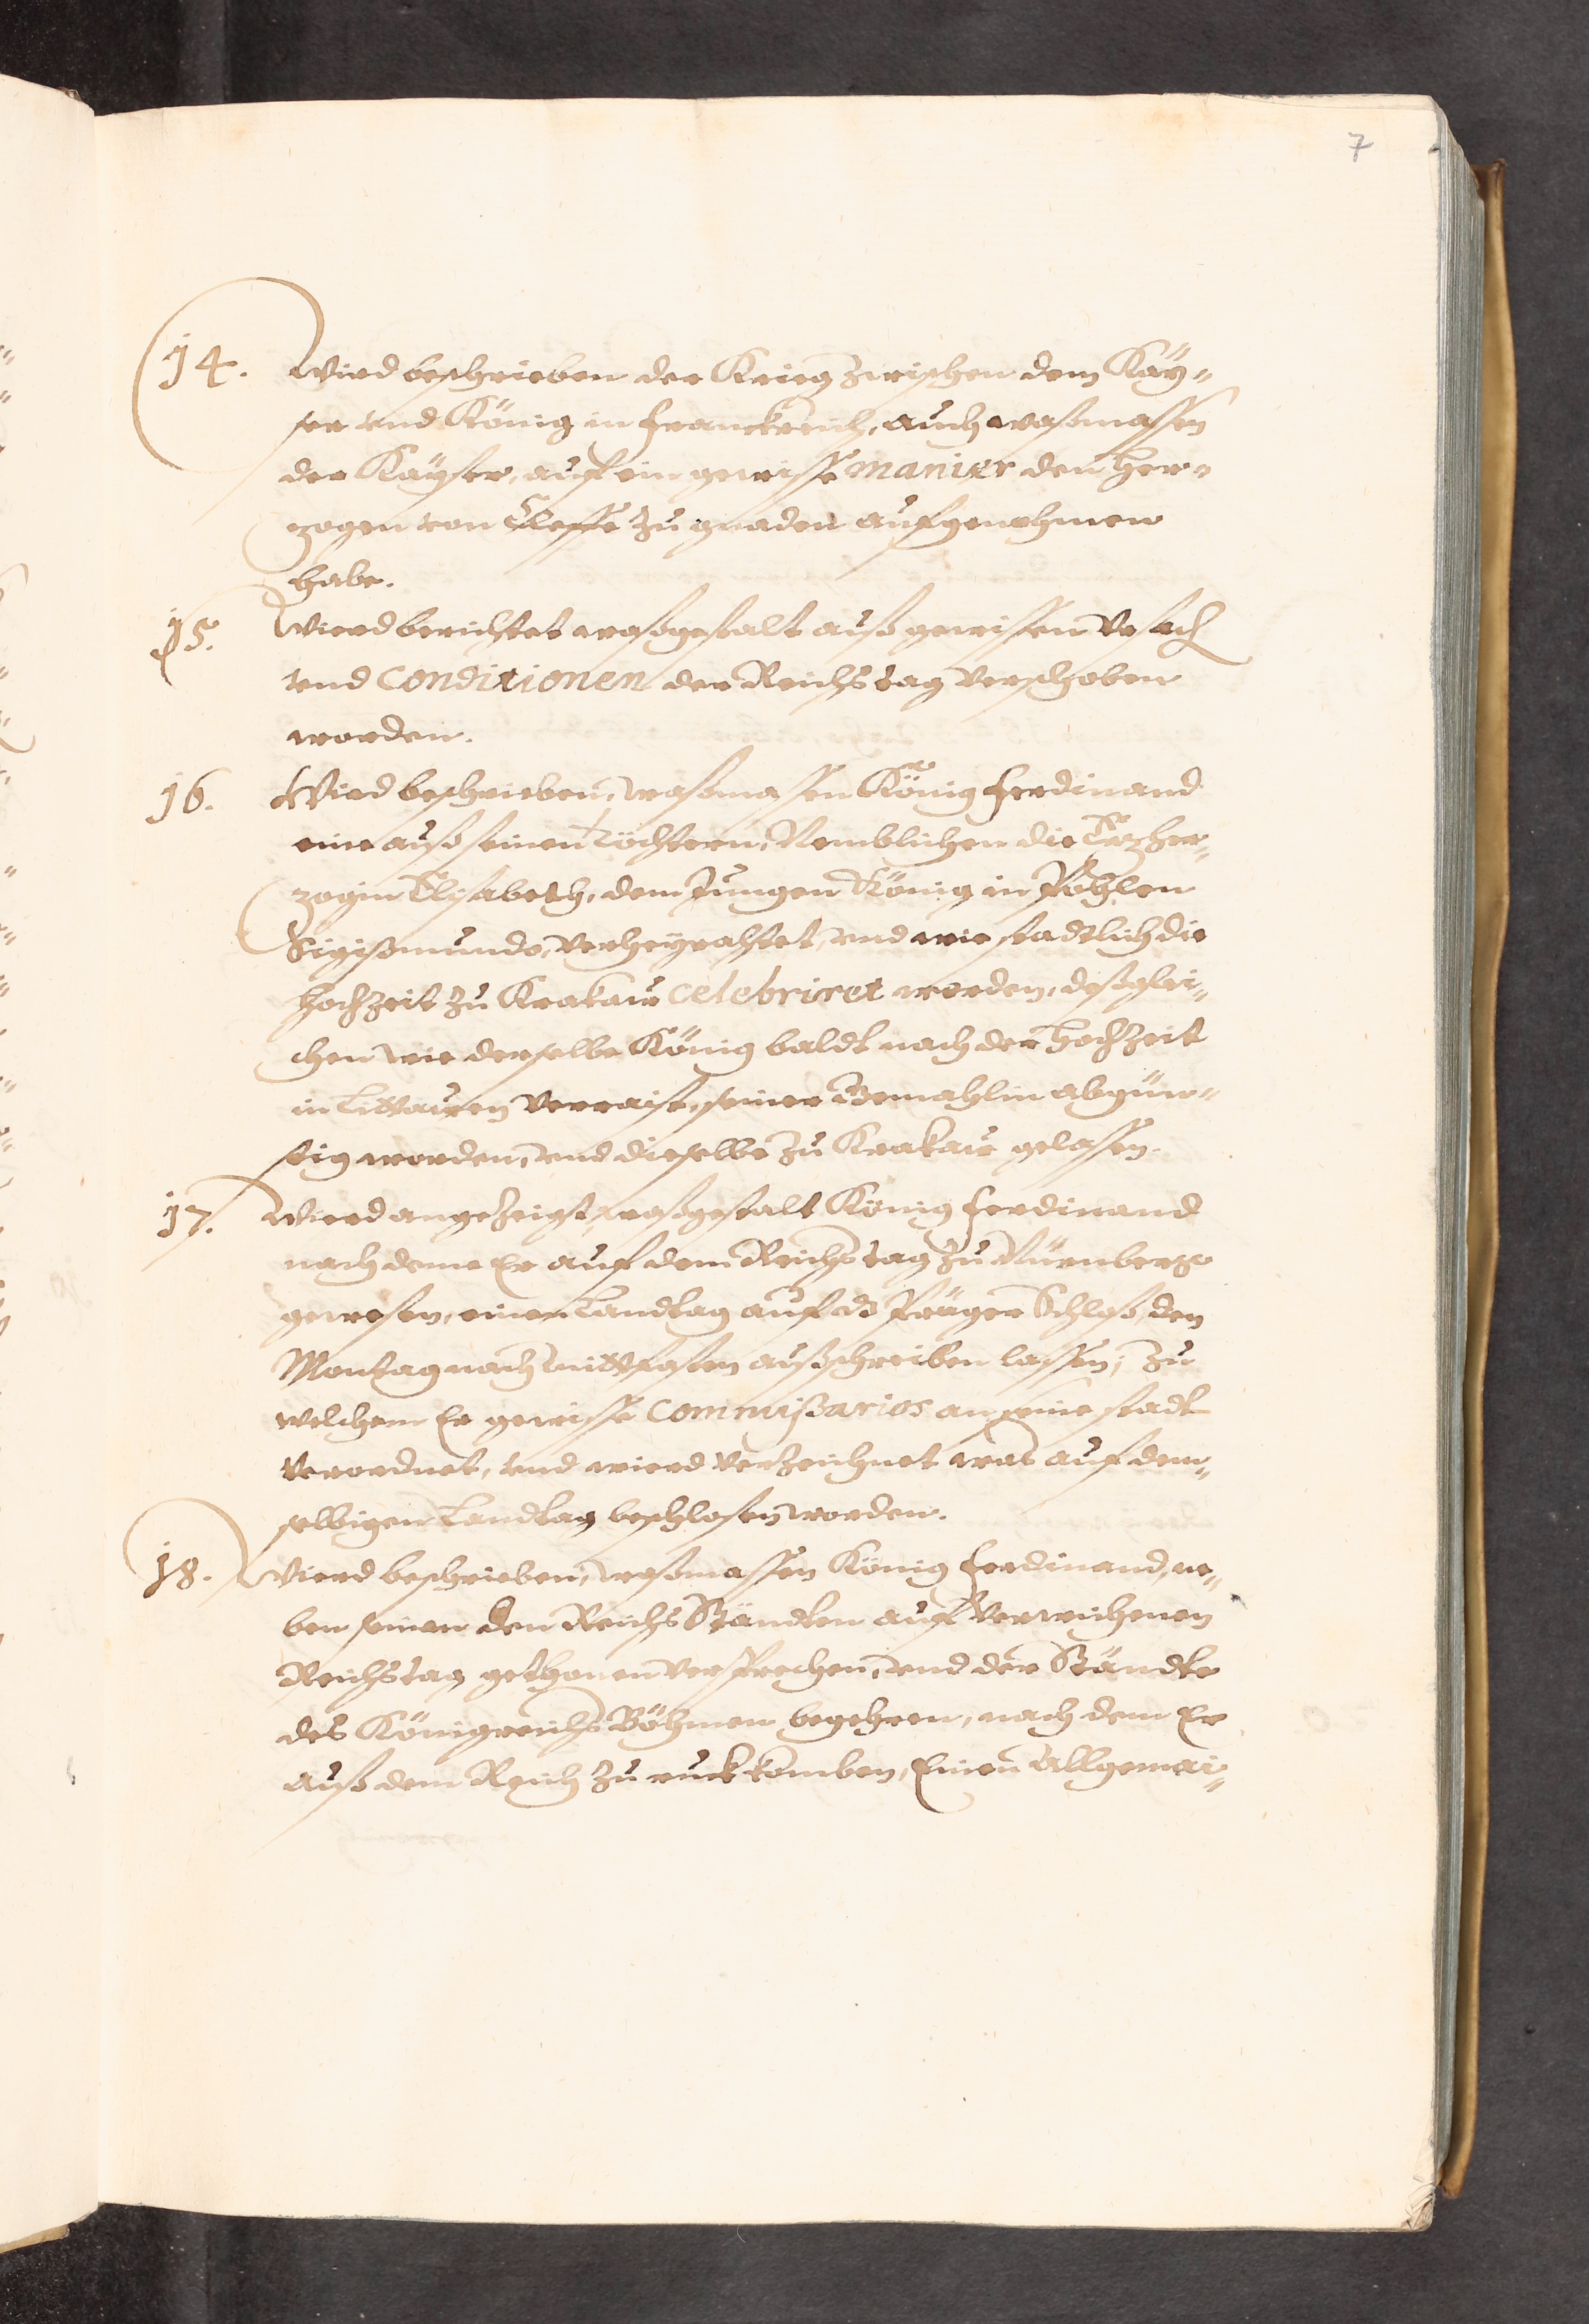 7
14. Wird beschrieben der Krieg zwischen dem Käy-
ser vnd König in Franckreich, auch waßmassen
der Kayser, auf ein gewisse manier den Her-
zogen von Cleffe zu gnaden aufgenohmen
habe.
15. Wierd berichtet waßgestalt auß gewissen Vrsach
vnd Conditionen der Reichstag verschoben
worden.
16. Wird beschrieben, waßmassen König Ferdinand
eine auß seinen Töchtern, Nemblichen die Erzher-
zogin Elisabeth, dem Jungen König in Pohlen
Sigißmundo, verheyrahtet, vnd wie stadtlich die
Hochzeit zu Krakaw celebriret worden, deßglei-
chen wie derselbe König baldt nach der Hochzeit
in Littauen verraist, seiner Gemahlin abgün-
stig worden, vnd dieselbe zu Krakaw gelassen.
17. Wierd angezeigt, waßgestalt König Ferdinand
nach deme Er auf dem Reichstag zu Nürnberg
gewesen, einen Landtag auf dz Prager Schloß, den
Montag nach mittfasten außschreiben lassen, zu
welchem Er gewisse Commißarios an seine stadt
verordnet, vnd wierd verzeichnet was auf dem-
selbigen Landtag beschlosen worden.
18. Wierd beschrieben, waßmassen König Ferdinand, ne-
ben seinen den ReichsStändten auf verwichenen
Reichstag gethonen versprechen, vnd der Ständte
des Königreichs Böhmen begehren, nach dem Er
auß dem Reich zu ruck komben, Einen Allgemai-